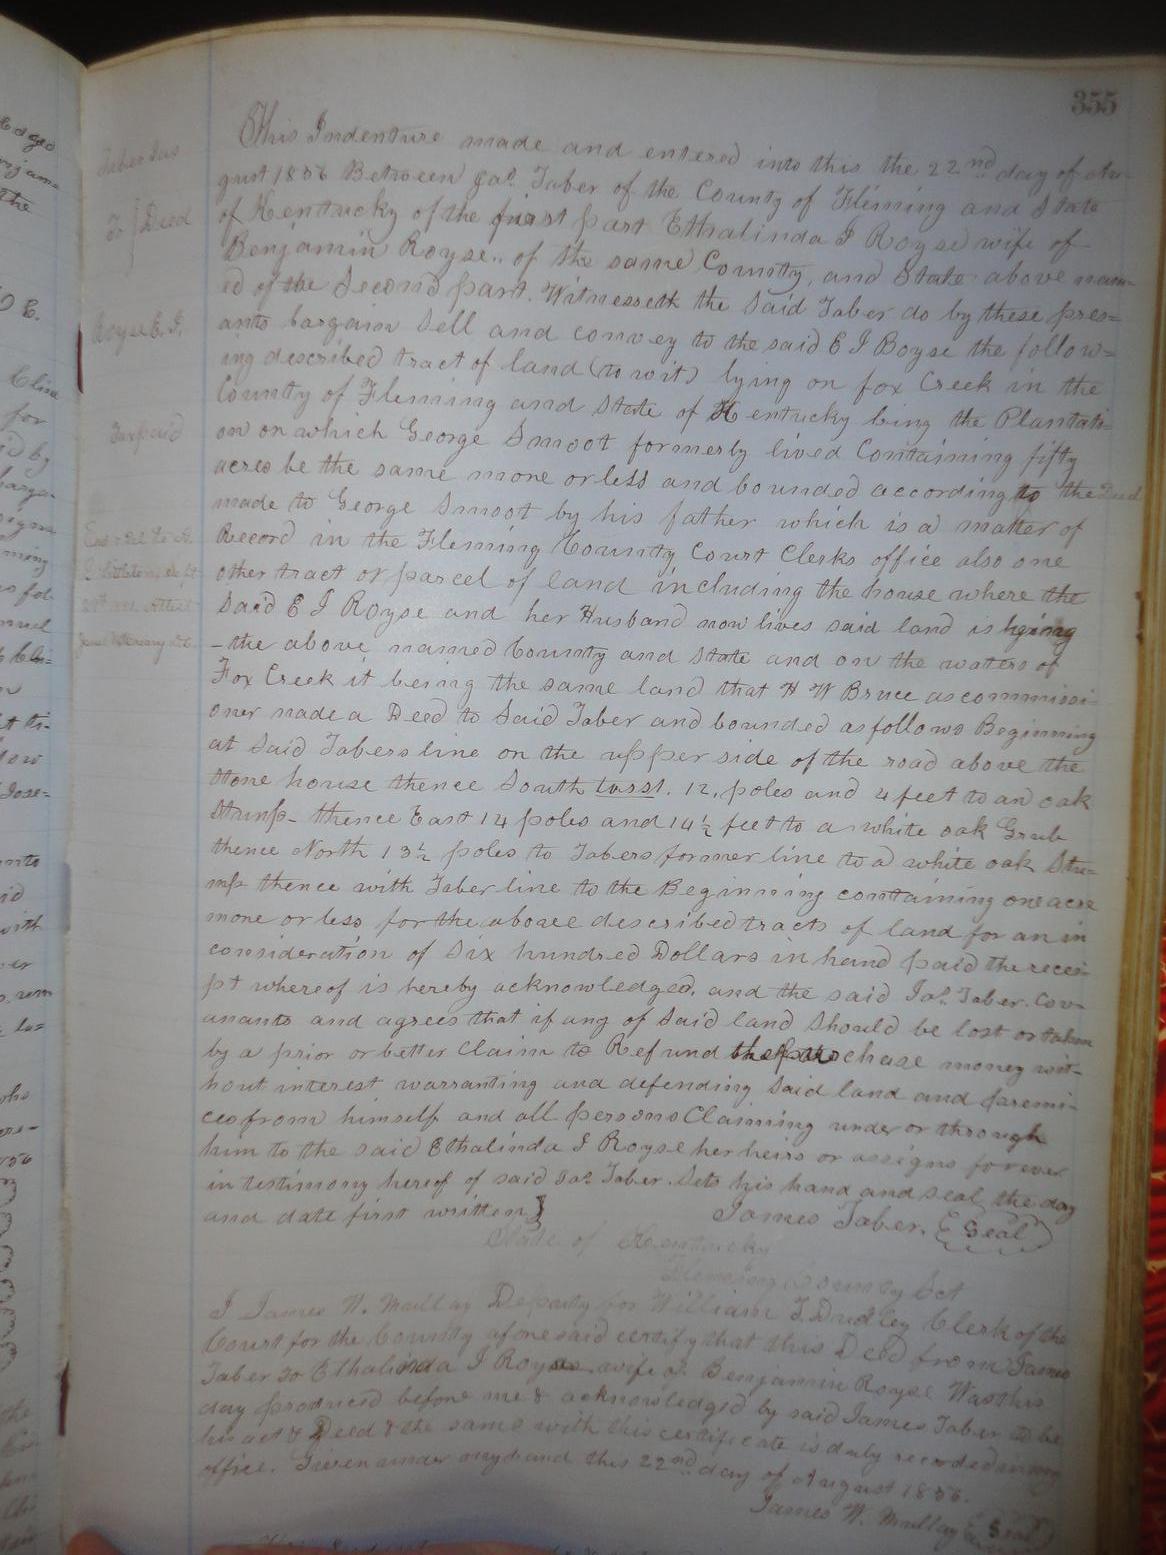 355
This Indenture made and entered into this the 22nd day of Au-
gust 1856 Between Jas. Taber of the County of Fleming and State
of Kentucky of the first part Ethalinda J Royse wife of
Benjamin Royse, of the same County, and State above nam-
ed of the Second part. Witnesseth the Said Taber do by these pres=
ants bargain Sell and convey to the said E J Royse the follow=
ing described tract of land (to wit) lying on fox Creek in the
County of Fleming and State of Kentucky being the Plantati=
on on which George Smoot formerly lived Containing fifty
acres be the same more or less and bounded according to the Deed
made to George Smoot by his father which is a matter of
Record in the Fleming County Court Clerks office also one
other tract or parcel of land including the house where the
Said E J Royse and her Husband now lives said land is
-the above named County and State and on the waters of
Fox Creek it being the same land that H W Bruce as commissi-
oner made a Deed to Said Taber and bounded as follows Beginning
at Said Tabers line on the upper side of the road above the
Stone house thence South 12, poles and 4 feet to an oak
Stump- thence East 14 poles and 14½ feet to a white oak Grub
thence North 13½ poles to Tabers former line to a white oak Stu=
mp thence with Taber line to the Beginning containing one acre
more or less, for the above described tracts of land for an in
consideration of Six hundred Dollars in hand paid the recei-
pt whereof is hereby acknowledged, and the said Jas. Taber. Cov-
anants and agrees that if any of Said land Should be lost or taken
by a prior or better Claim to Refund the purchase money wit-
hout interest warranting and defending Said land and premi-
ces from himself and all persons Claiming under or through
him to the said Ethalinda J Royse her heirs or assigns forever
in testimony hereof of said Jas Taber. Sets his hand and seal the day
and date first written}
James Taber. {Seal}
State of Kentucky
Fleming County Sct
I James W. Maullay Deputy for William T. Dudley Clerk of the
Court for the County aforesaid certify that this Deed from James
Taber to Ethalinda J Royse wife of Benjamin Royse Was this
day produced before me & acknowledged by said James Taber to be
his act & Deed & the same with this certificate is duly recorded in my
office. Given under my hand this 22nd day of August 1856.
James W. Maullay {Seal}
Taber Jas
To } Deed
Royse E. J.
Tax paid